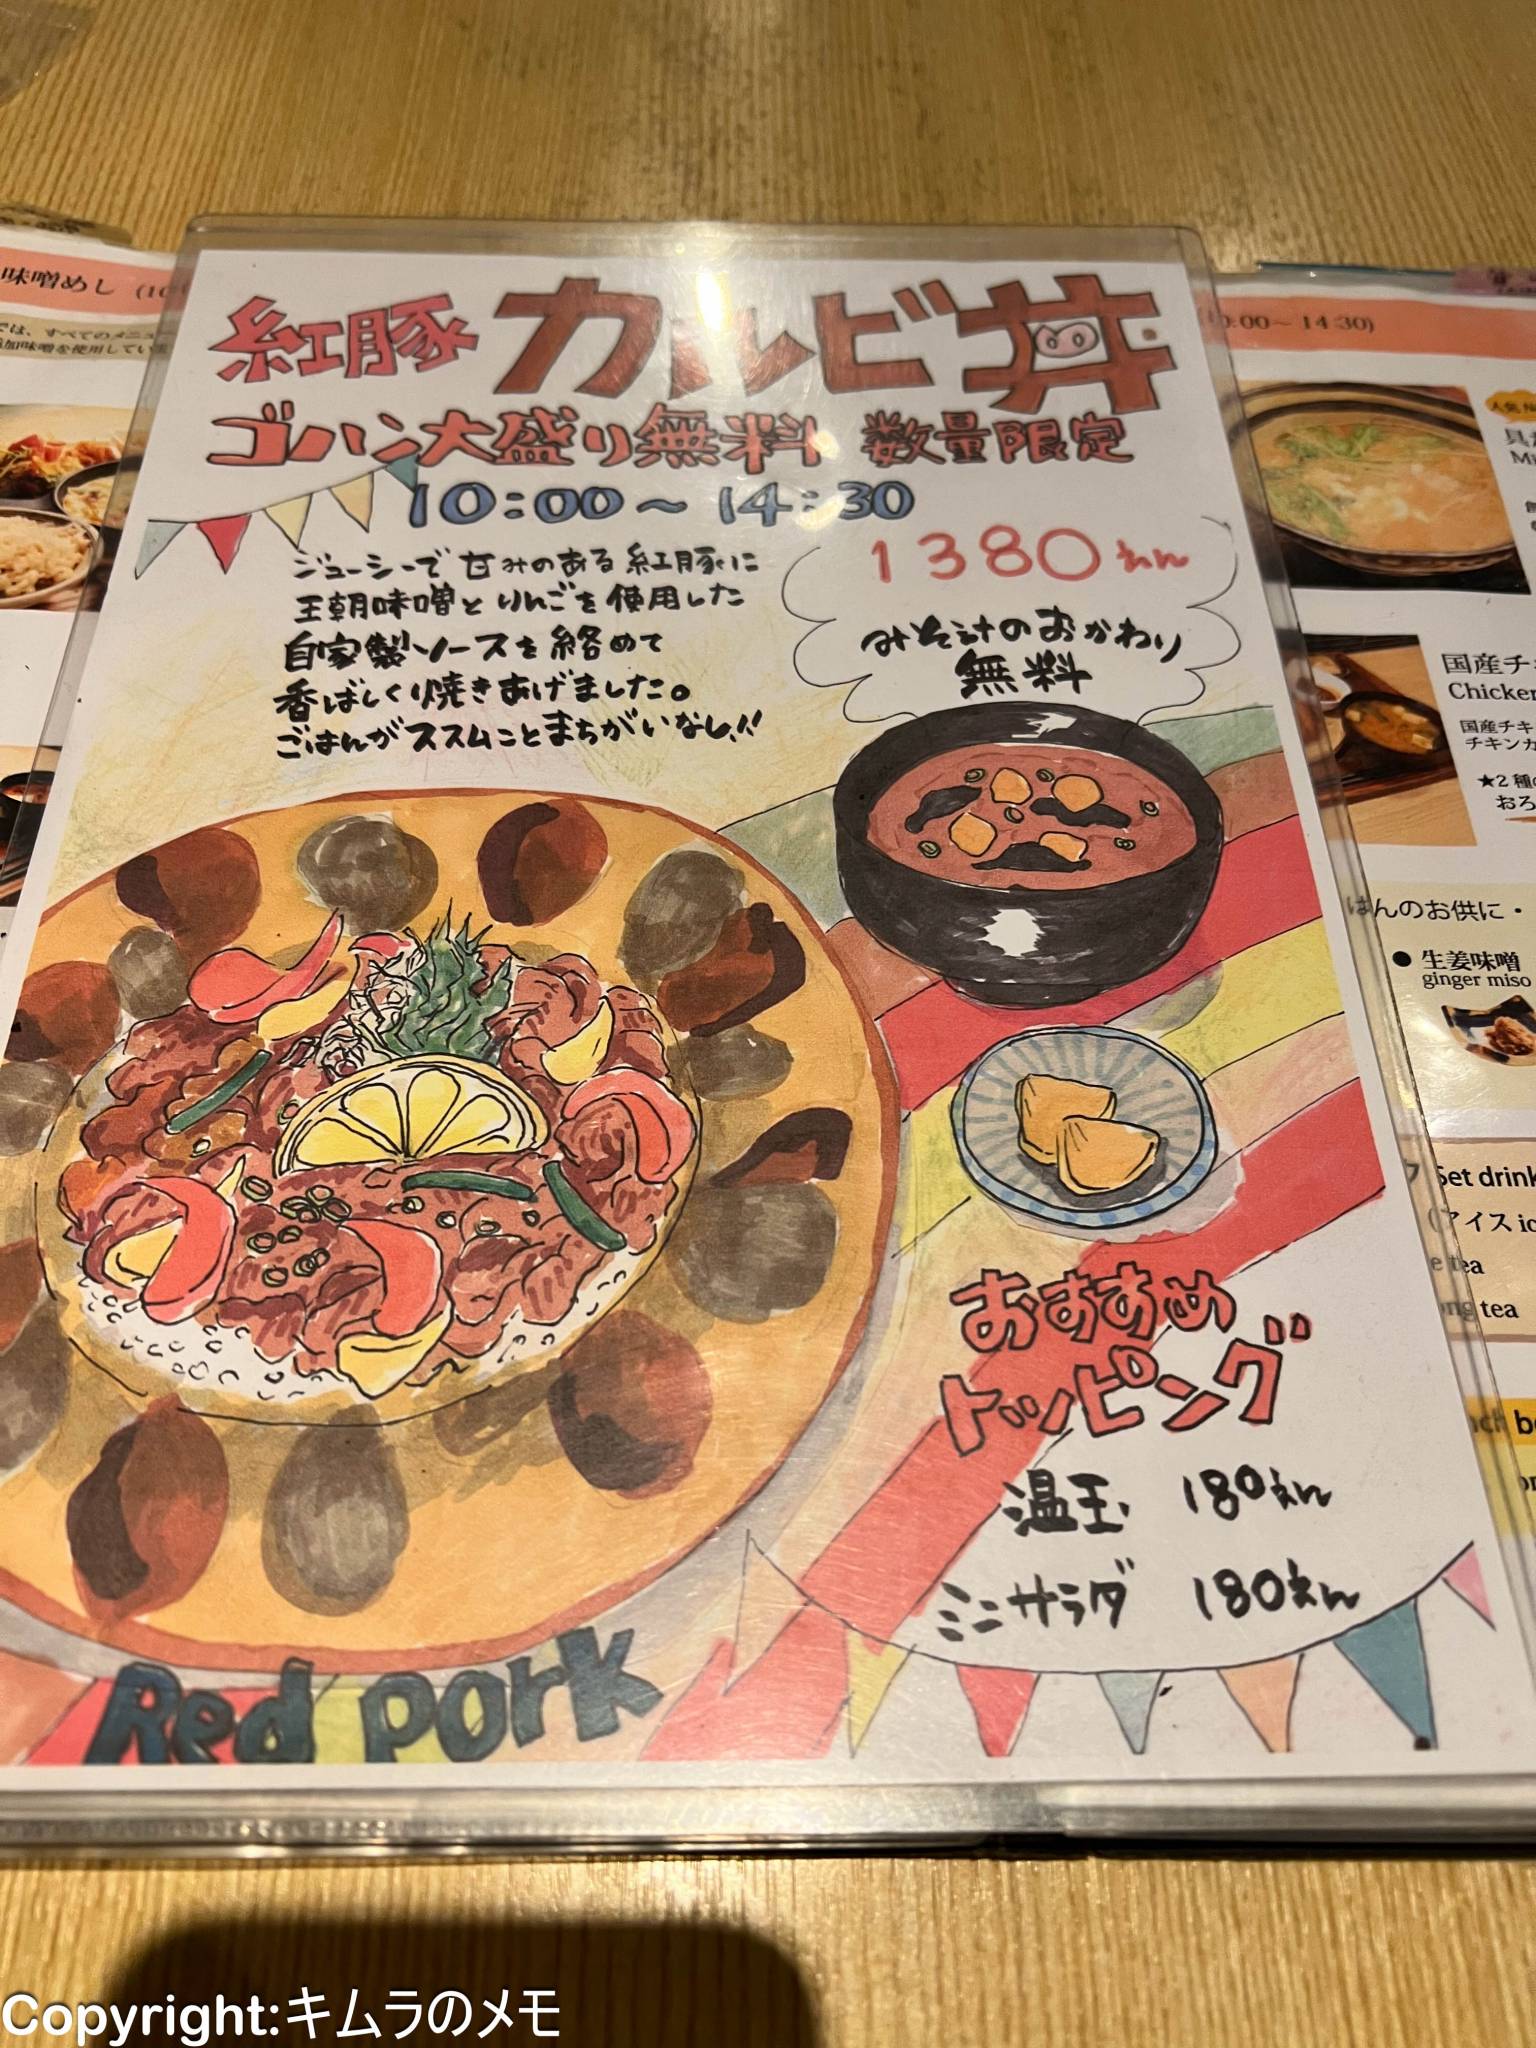 紅豚 カルビ丼
ゴハン大盛り無料 数量限定
10:00～14:30
ジューシーで甘みのある紅豚に
王朝味噌とりんごを使用した
自家製ソースを絡めて
香ばしく焼きあげました。
ごはんがススムことまちがいなし!!
1380えん
みそ汁のおかわり
無料
おすすめ
トッピング
温玉 180えん
ミニサラダ 180えん
Red pork
味噌めし
では、すべてのメニュー
加味噌を使用してい
10:00～14:30)
国産チキ
Chicken
国産チキ
チキンカ
★2種
おろ
はんのお供に・
● 生姜味噌
ginger miso
Set drink
アイス ic
tea
tea
Copyright:キムラのメモ